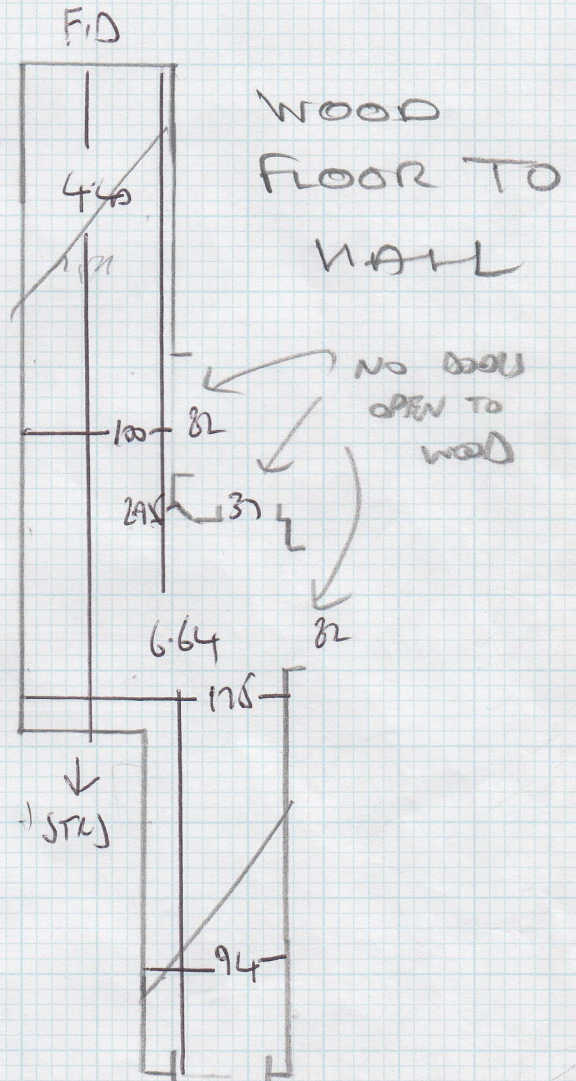 F.D
WOOD
FLOOR TO
HALL
4.40
NO DOORS
OPEN TO
WOOD
100
82
37
6.64
82
175
STRS
94